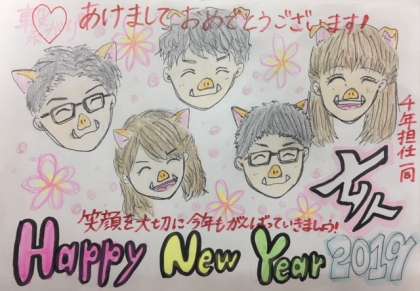 あけましておめでとうございます!
4年担任一同
笑顔を大切に今年もがんばっていきましょう!
Happy New Year 2019